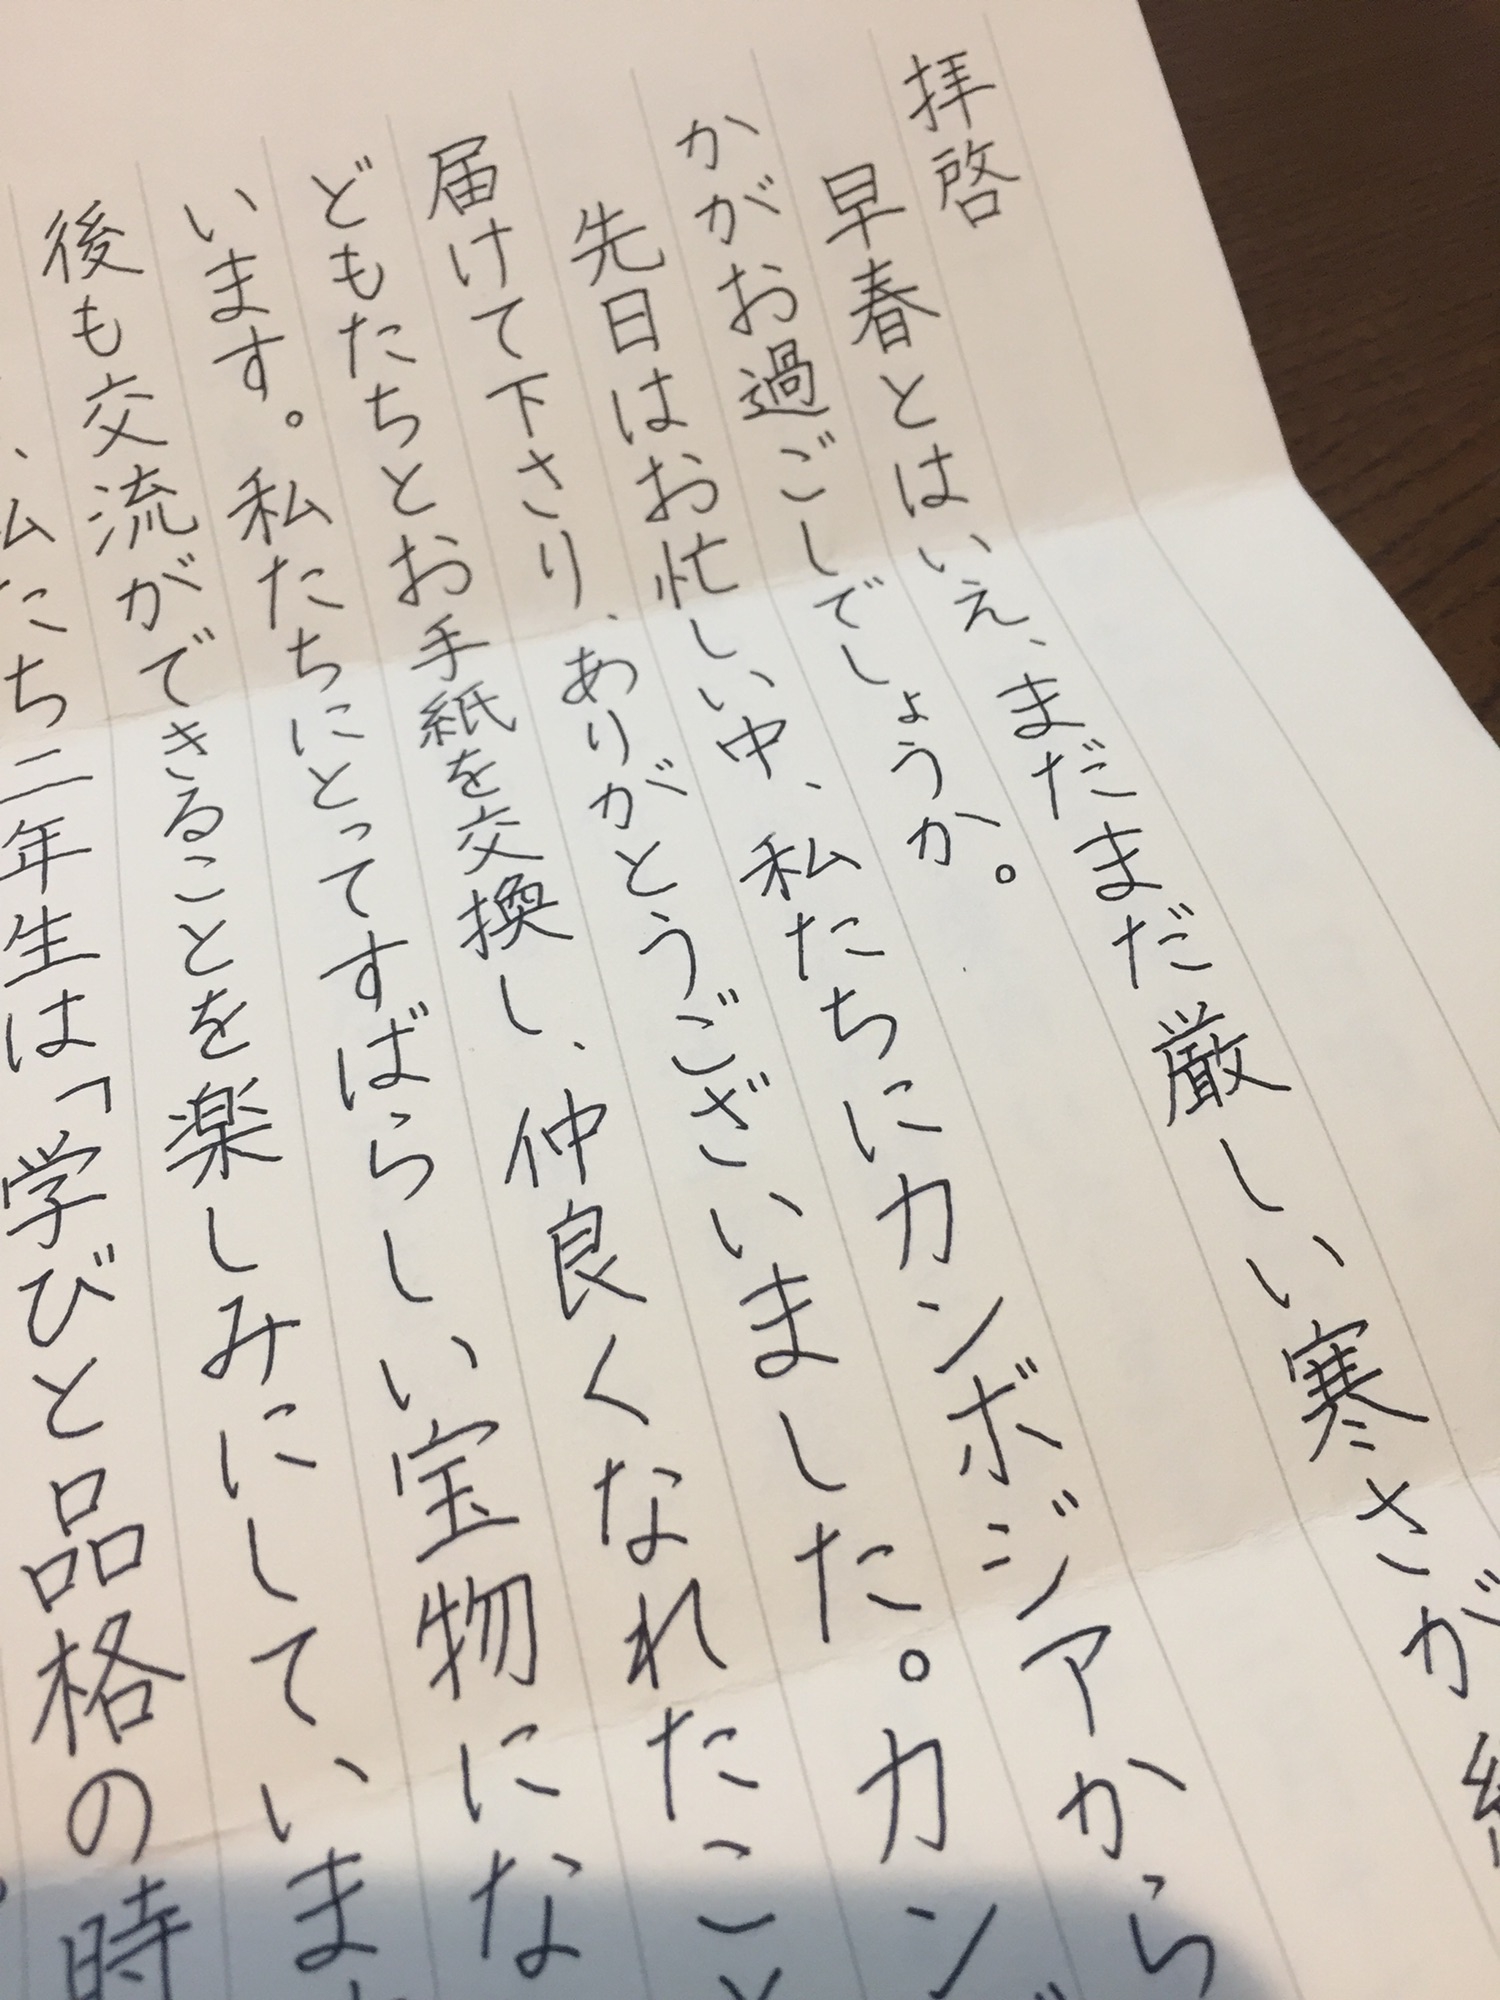 拝啓
早春とはいえ、まだまだ厳しい寒さが
かがお過ごしでしょうか。
先日はお忙しい中、私たちにカンボジアから
届けて下さり、ありがとうございました。カン
どもたちとお手紙を交換し、仲良くなれたこと
います。私たちにとってすばらしい宝物にな
後も交流ができることを楽しみにしていま
私たち二年生は「学びと品格の時